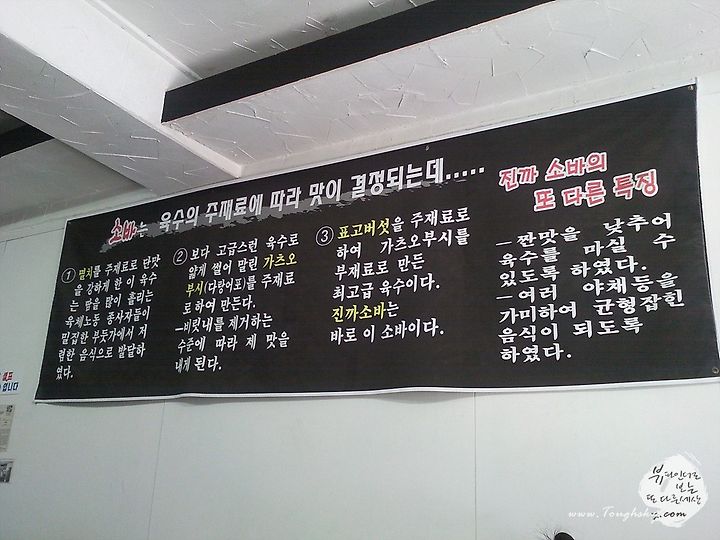 소바는 육수의 주재료에 따라 맛이 결정되는데.....
① 멸치를 주재료로 단맛
을 강하게 한 이 육수
는 땀을 많이 흘리는
육체노동 종사자들이
밀집한 부둣가에서 저
렴한 음식으로 발달하
였다.
② 보다 고급스런 육수로
얇게 썰어 말린 가츠오
부시(다랑어포)를 주재료
로 하여 만든다.
-비릿내를 제거하는
수준에 따라 제 맛을
내게 된다.
③ 표고버섯을 주재료로
하여 가츠오부시를
부재료로 만든
최고급 육수이다.
진까소바는
바로 이 소바이다.
진까 소바의
또 다른 특징
-짠맛을 낮추어
육수를 마실 수
있도록 하였다.
-여러 야채등을
가미하여 균형잡힌
음식이 되도록
하였다.
셀프
입니다
뷰파인더로
보는
또 다른세상
www.Toughsky.com